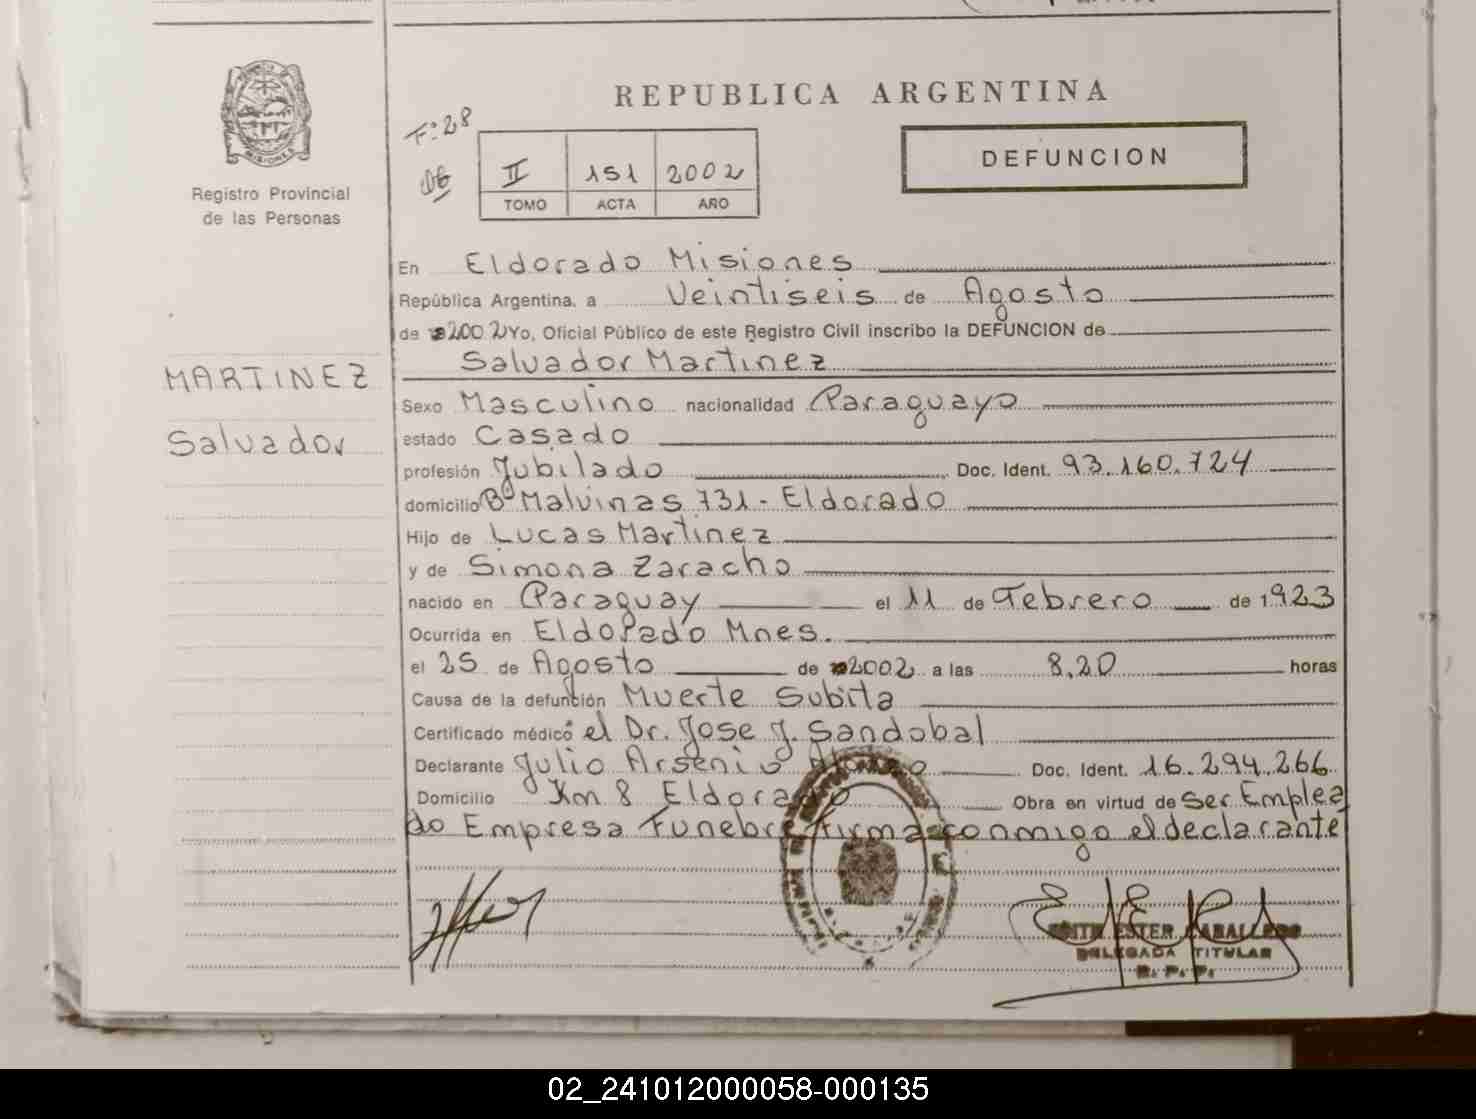 REPUBLICA ARGENTINA
Fº 28
DEFUNCION
II 151 2002
TOMO ACTA AÑO
MISIONES
Registro Provincial
de las Personas
MARTINEZ
Salvador
En Eldorado Misiones
República Argentina, a Veintiseis de Agosto
de 2002 Yo, Oficial Público de este Registro Civil inscribo la DEFUNCION de
Salvador Martinez
Sexo Masculino nacionalidad Paraguayo
estado Casado
profesión Jubilado Doc. Ident. 93.160.724
domicilio Bº Malvinas 731 - Eldorado
Hijo de Lucas Martinez
y de Simona Zaracho
nacido en Paraguay el 11 de Febrero de 1923
Ocurrida en Eldorado Mnes.
el 25 de Agosto de 2002 a las 8,20 horas
Causa de la defunción Muerte Subita
Certificado médico el Dr. Jose J. Sandobal
Declarante Julio Arsenio Alonso Doc. Ident. 16.294.266
Domicilio Km 8 Eldorado Obra en virtud de Ser Emplea
do Empresa Funebre firma conmigo el declarante
EDITH ESTER CABALLERO
DELEGADA TITULAR
R. P. P.
02_241012000058-000135